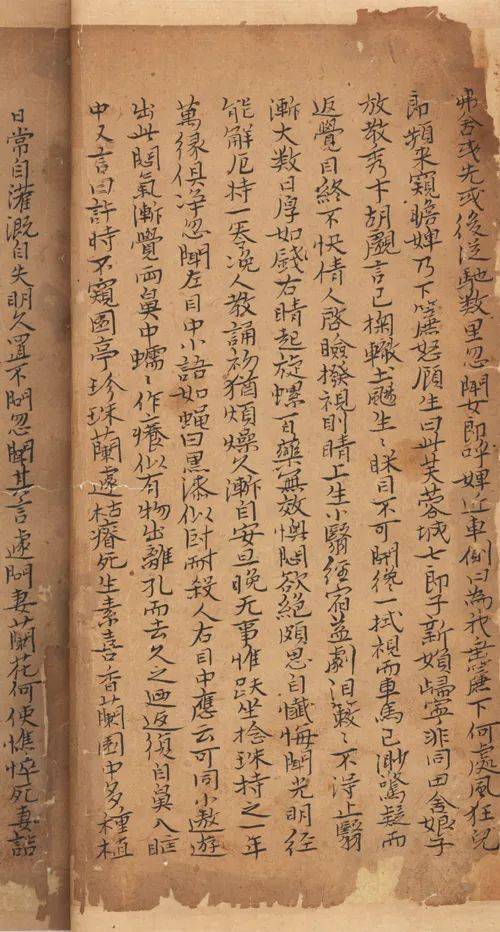 弗舍或先或後從馳数里忽聞女郎呼婢近車側曰為我垂簾下何處風狂兒
郎頻來窺瞻婢乃下簾怒顧生曰此芙蓉城七郎子新婦歸寧非同田舍娘子
放教秀才胡覷言已掬轍土颺生〻眯目不可開纔一拭視而車馬已渺驚疑而
返覺目終不快倩人啓瞼撥視則睛上生小翳經宿益劇泪簌〻不得止翳
漸大数日厚如錢右睛起旋螺百藥無效懊悶欲絕頗思自懺悔聞光明經
能解厄持一卷浼人教誦初猶煩燥久漸自安旦晚无事惟趺坐捻珠持之一年
萬緣俱淨忽聞左目中小語如蝇曰黑漆似叵耐殺人右目中應云可同小遨遊
出此悶氣漸覺両鼻中蠕〻作癢似有物出離孔而去久之迺返復自鼻入眶
中又言曰許時不窺園亭珍珠蘭遽枯瘠死生素喜香蘭園中多種植
日常自灌溉自失明久置不問忽聞其言遽問妻蘭花何使憔悴死妻詰